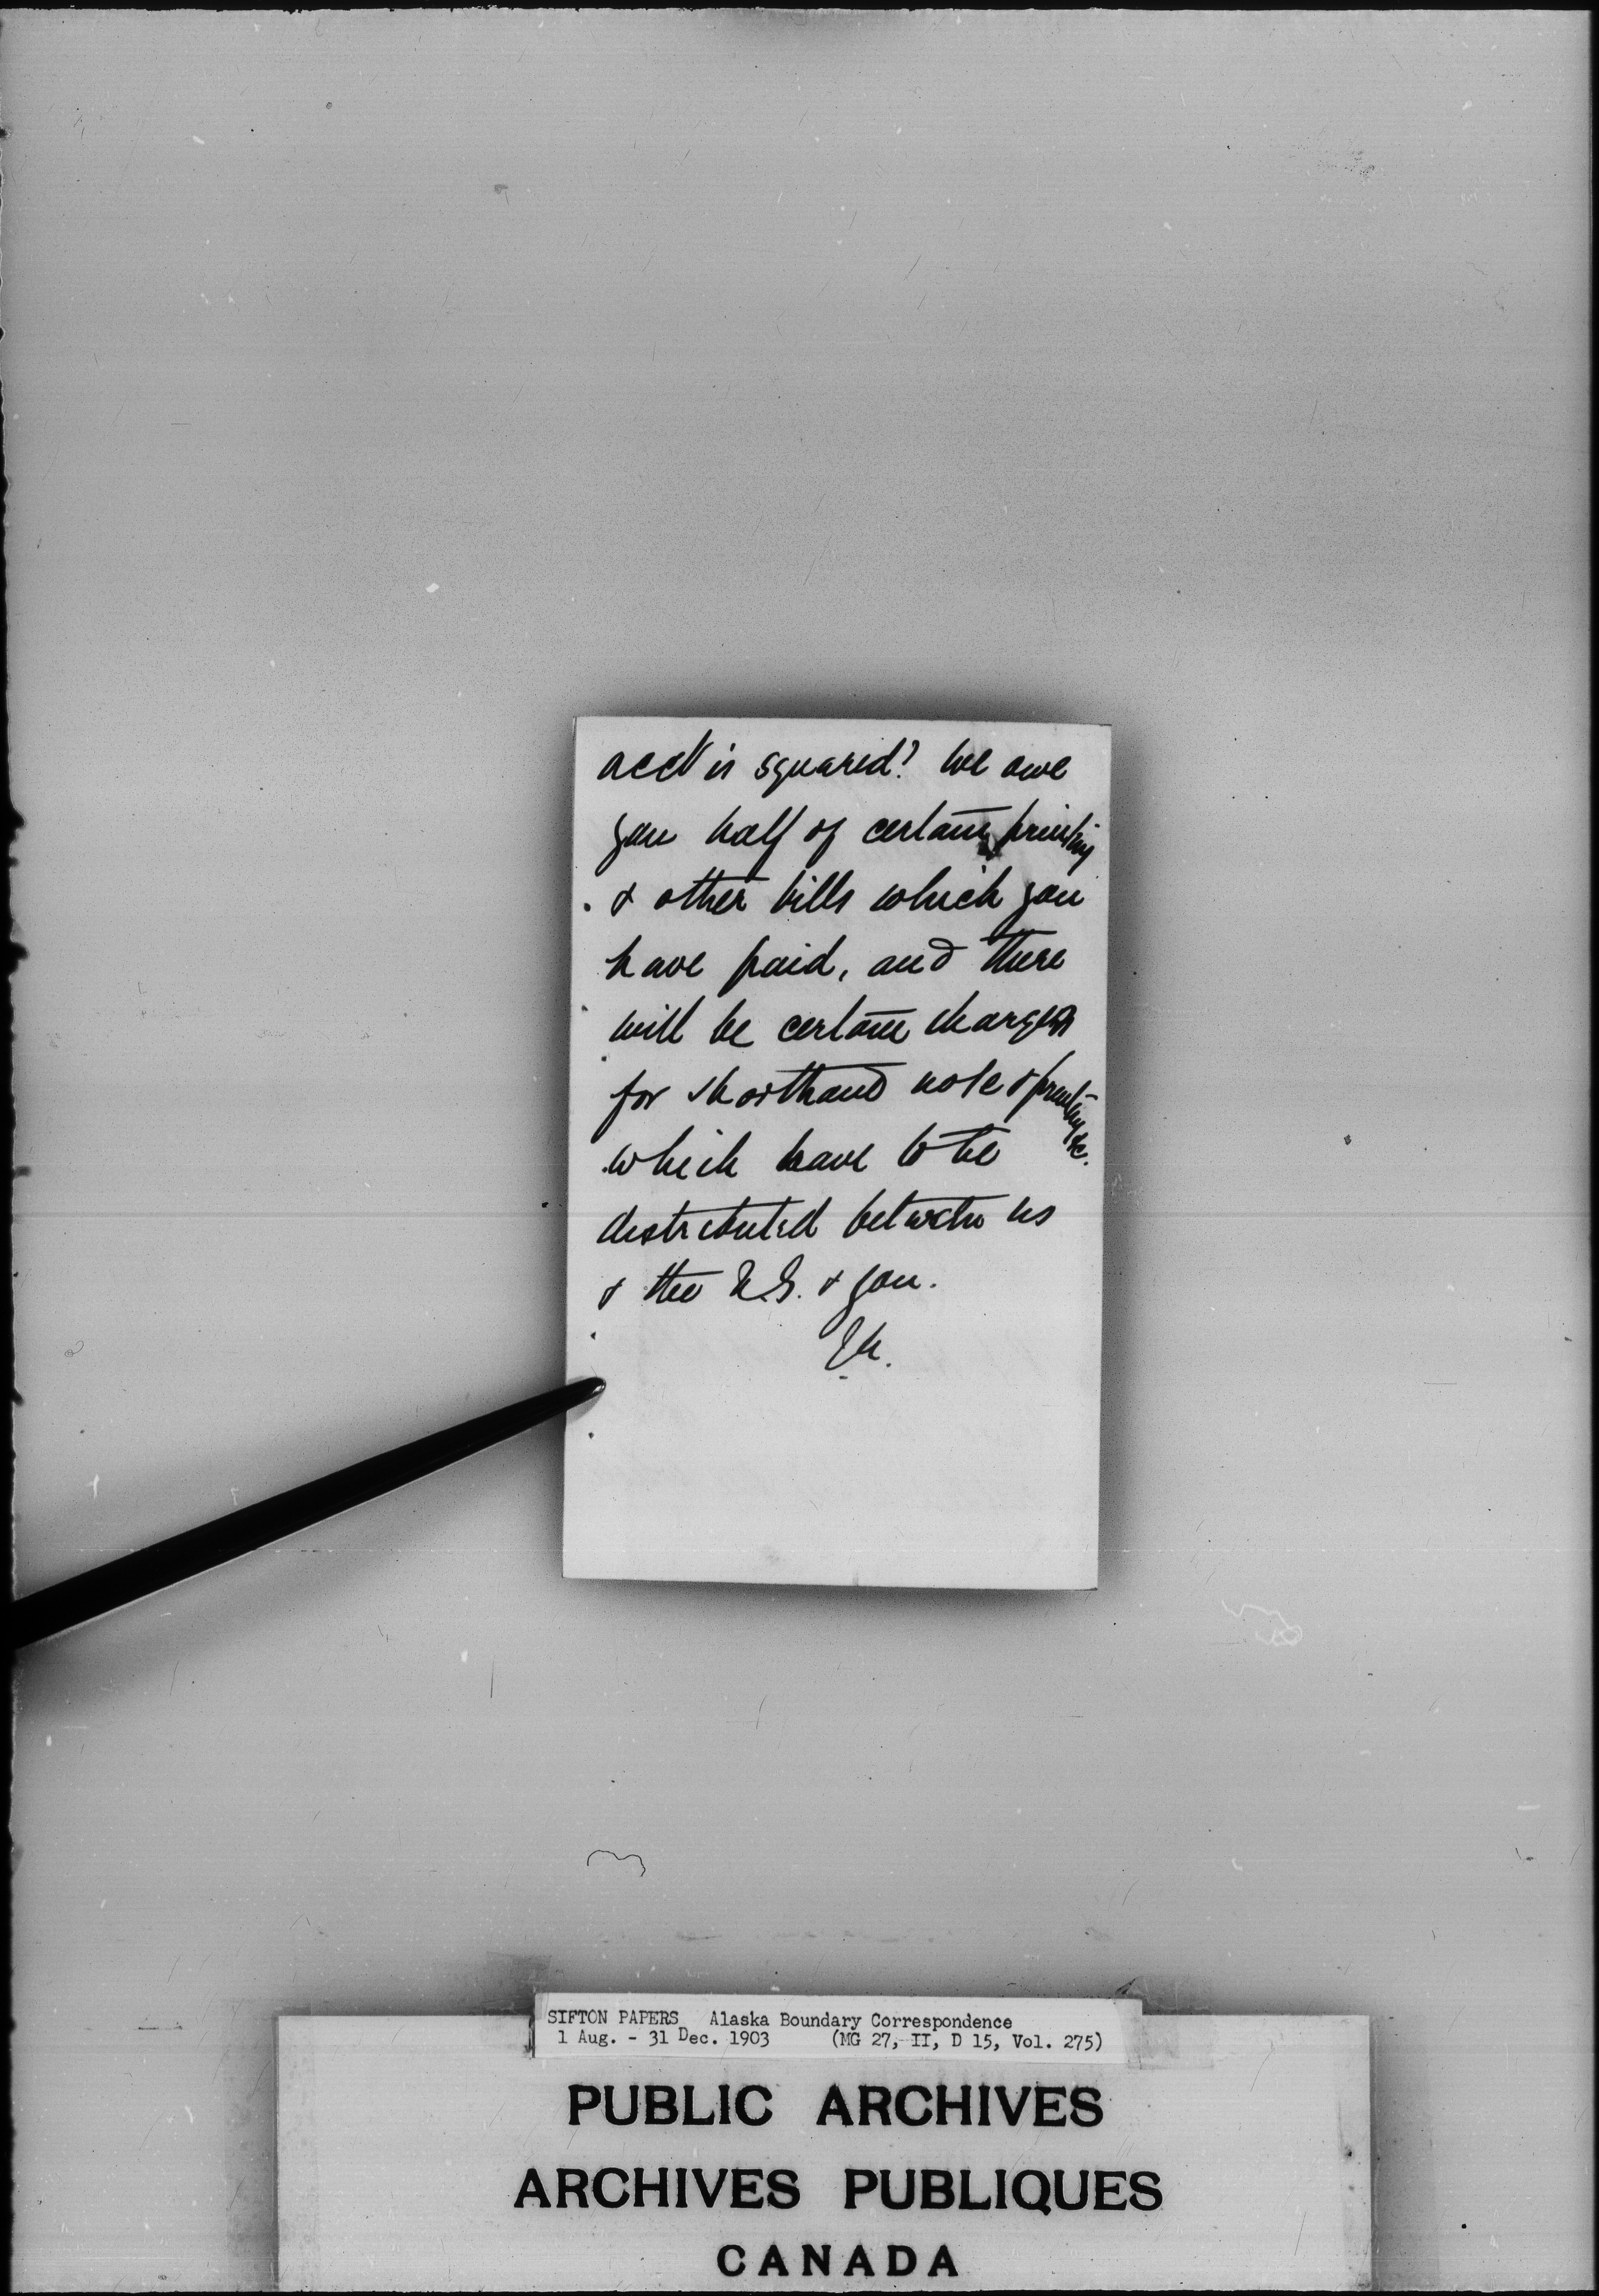 acct is squared? We owe
you half of certain printing
& other bills which you
have paid, and there
will be certain charges
for shorthand note & printing &c.
which have to be
distributed between us
& the U.S. & you.
SIFTON PAPERS Alaska Boundary Correspondence
1 Aug. - 31 Dec. 1903 (MG 27, II, D 15, Vol. 275)
PUBLIC ARCHIVES
ARCHIVES PUBLIQUES
CANADA